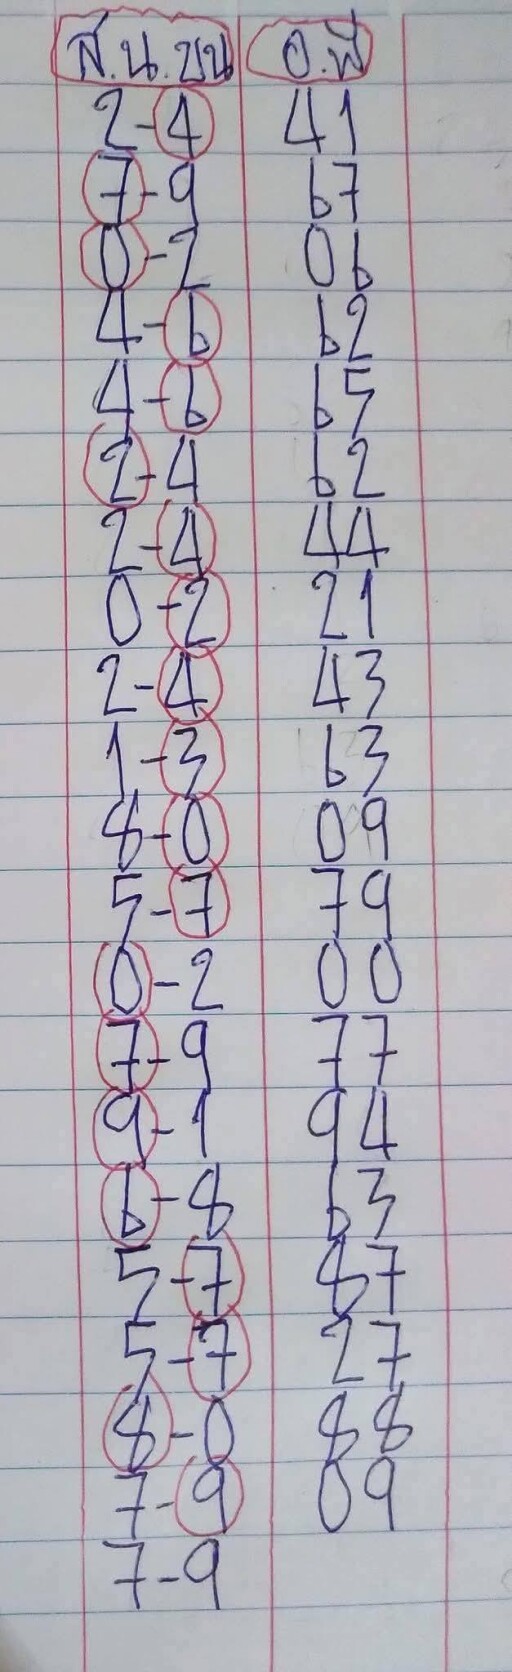 ส.น.ชน อ.พี
2-4 41
7-9 67
0-2 06
4-6 62
4-6 65
2-4 62
2-4 44
0-2 21
2-4 43
1-3 63
8-0 09
5-7 79
0-2 00
7-9 77
9-1 94
6-8 63
5-7 87
5-7 27
8-0 88
7-9 09
7-9